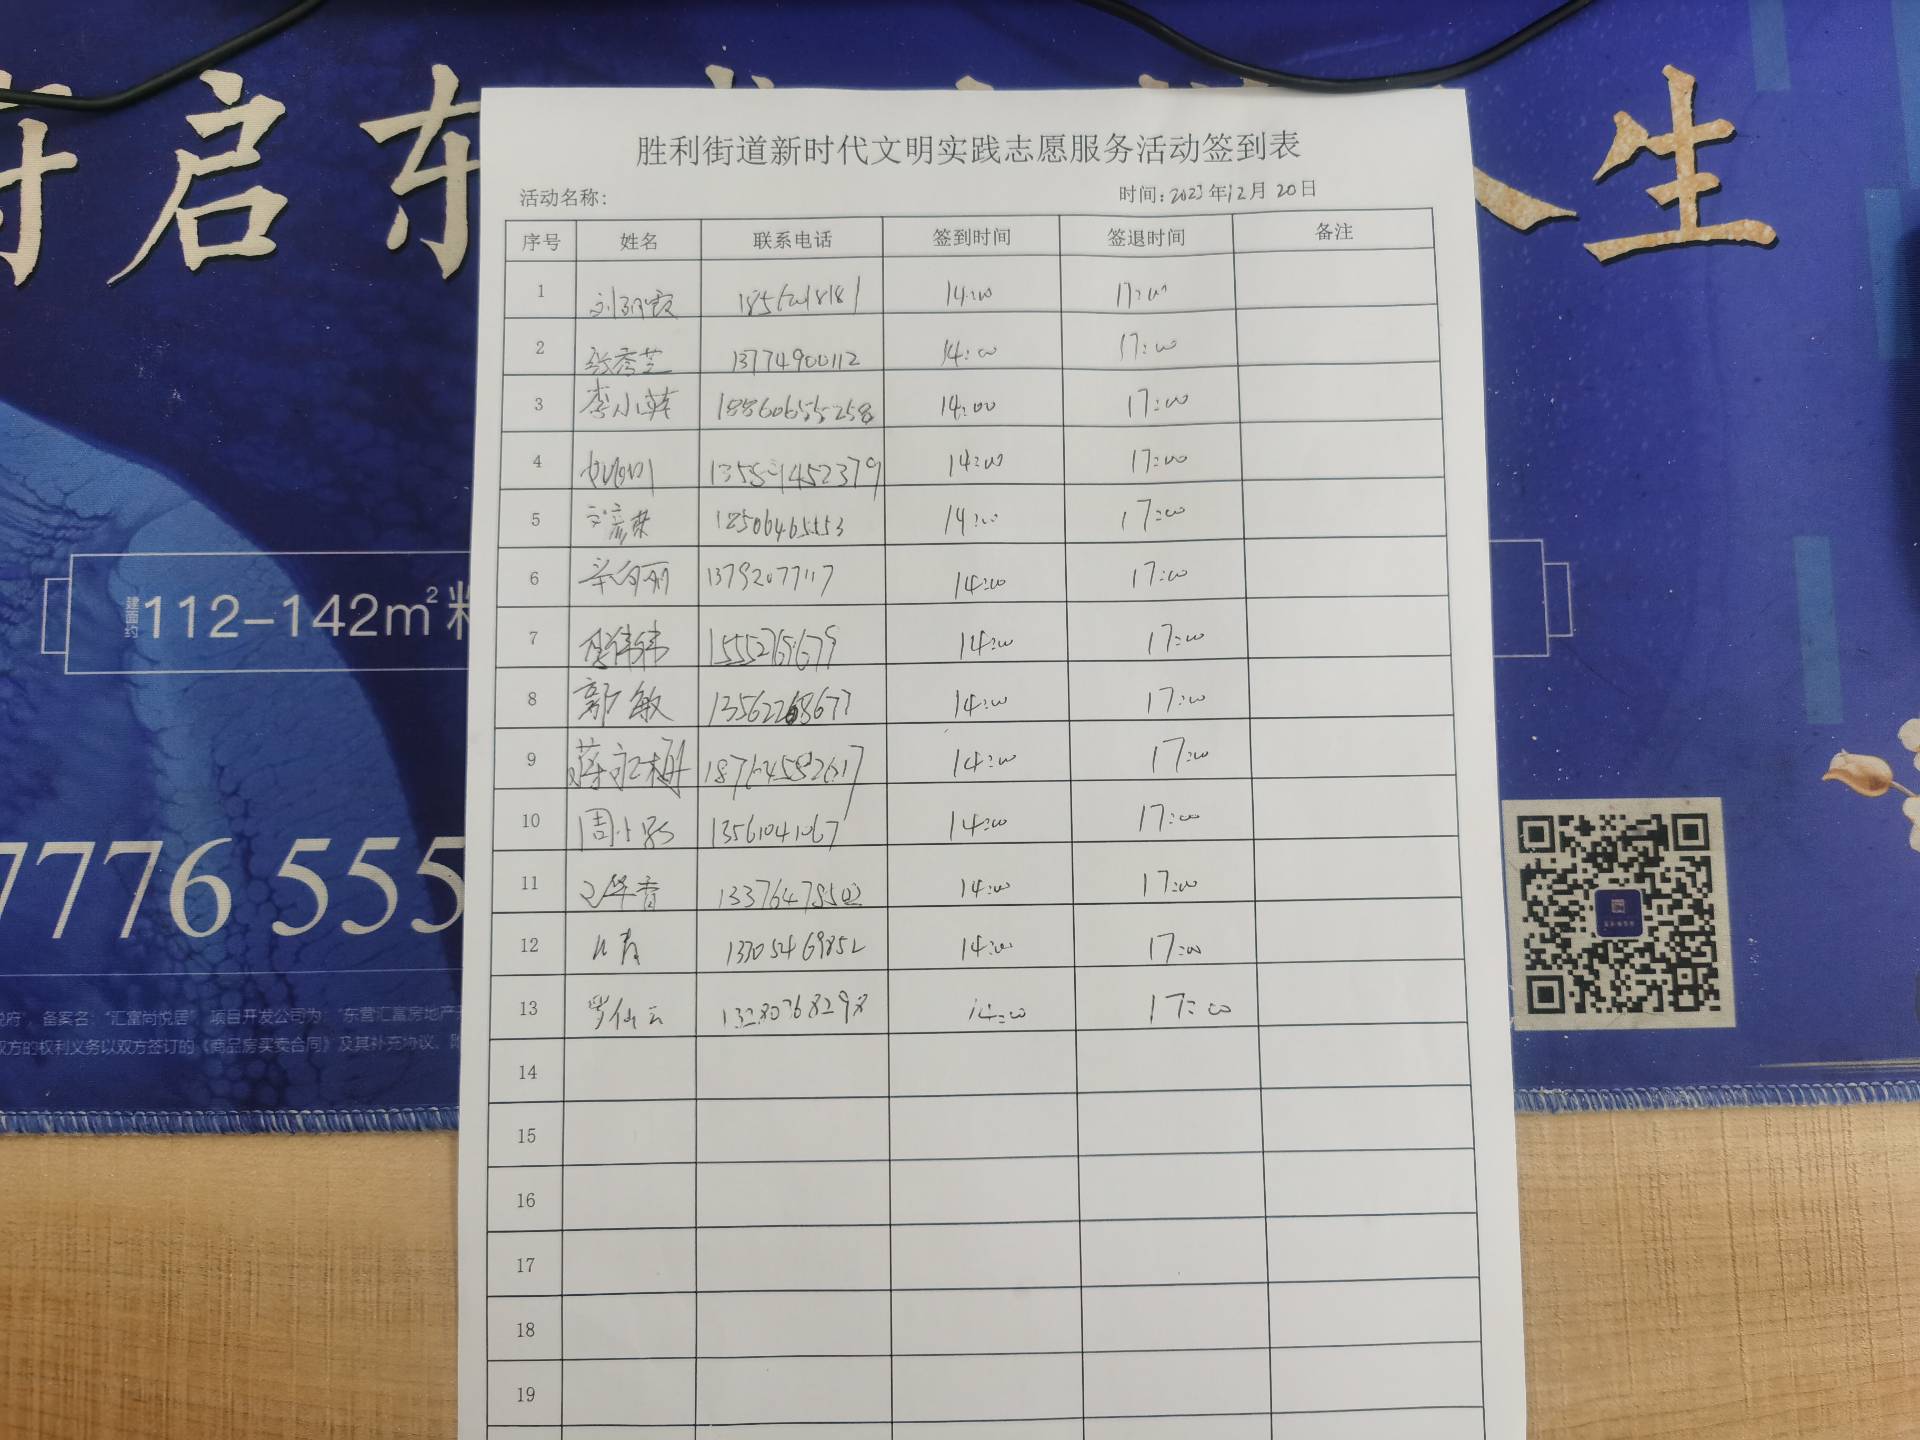 启东
生
胜利街道新时代文明实践志愿服务活动签到表
活动名称: 时间: 2023年12月20日
序号 姓名 联系电话 签到时间 签退时间 备注
1 14:00 17:00
2 张秀芝 13774900112 14:00 17:00
3 李小 18860655258 14:00 17:00
4 14:00 17:00
5 18506465553 14:00 17:00
6 13792077117 14:00 17:00
7 14:00 17:00
8 郭敏 14:00 17:00
9 蒋永梅 18764582617 14:00 17:00
10 周小 13561041067 14:00 17:00
11 华香 13376478502 14:00 17:00
12 13305469852 14:00 17:00
13 罗仙云 13280368298 14:00 17:00
14
15
16
17
18
19
建面约112-142m²
7776 555
府”，备案名：“汇富尚悦居” 项目开发公司为：“东营汇富房地产
双方的权利义务以双方签订的《商品房买卖合同》及其补充协议、